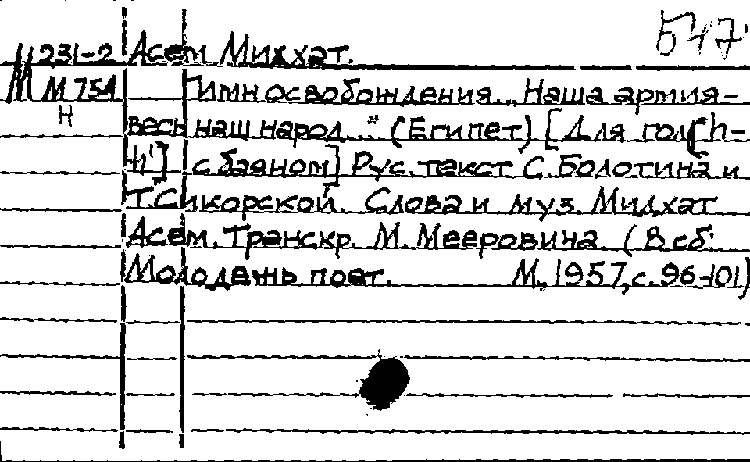 547
М 231-2 Асем Мидхат.
М 754 Гимн освобождения. „Наша армия-
Н
весь наш народ..." (Египет) [Для гол. (h-
h') с баяном] Рус. текст С. Болотина и
Т. Сикорской. Слова и муз. Мидхат
Асем. Транскр. М. Мееровича. (В сб:
Молодежь поет. М., 1957, с. 96-101)